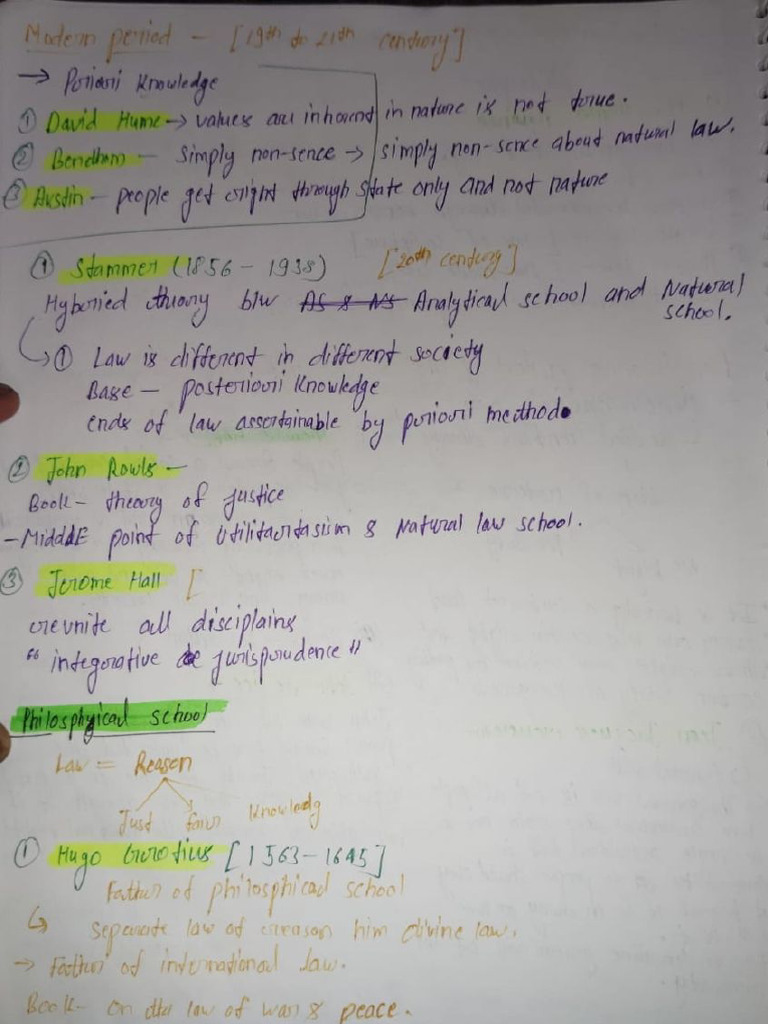 Modern period - [19th to 21th centuory]
→ Poriori Knowledge
① David Hume → values are inhorent in nature is not torue.
② Bendham - Simply non-sence → simply non-sence about natural law.
③ Austin - people get oright through state only and not nature
① Stammer (1856 - 1938) [20th century]
Hyboried theory b/w AS & NS Analytical school and Natural
school.
① Law is different in different society
Base - posterioori Knowledge
ends of law assertainable by poriori medthod.
② John Rowls -
Book - theory of justice
- MiddlE point of utilitaoritasim & Natural law school.
③ Jerome Hall [
oreunite all disciplains
" integorative jurisporudence "
Philosphyical school
Law = Reason
Just fair Knowledg
① Hugo Gorotius [1563-1645]
Father of philosphical school
↳ separate law of oreason him divine law.
→ Father of international law.
Book - on tha law of war & peace.